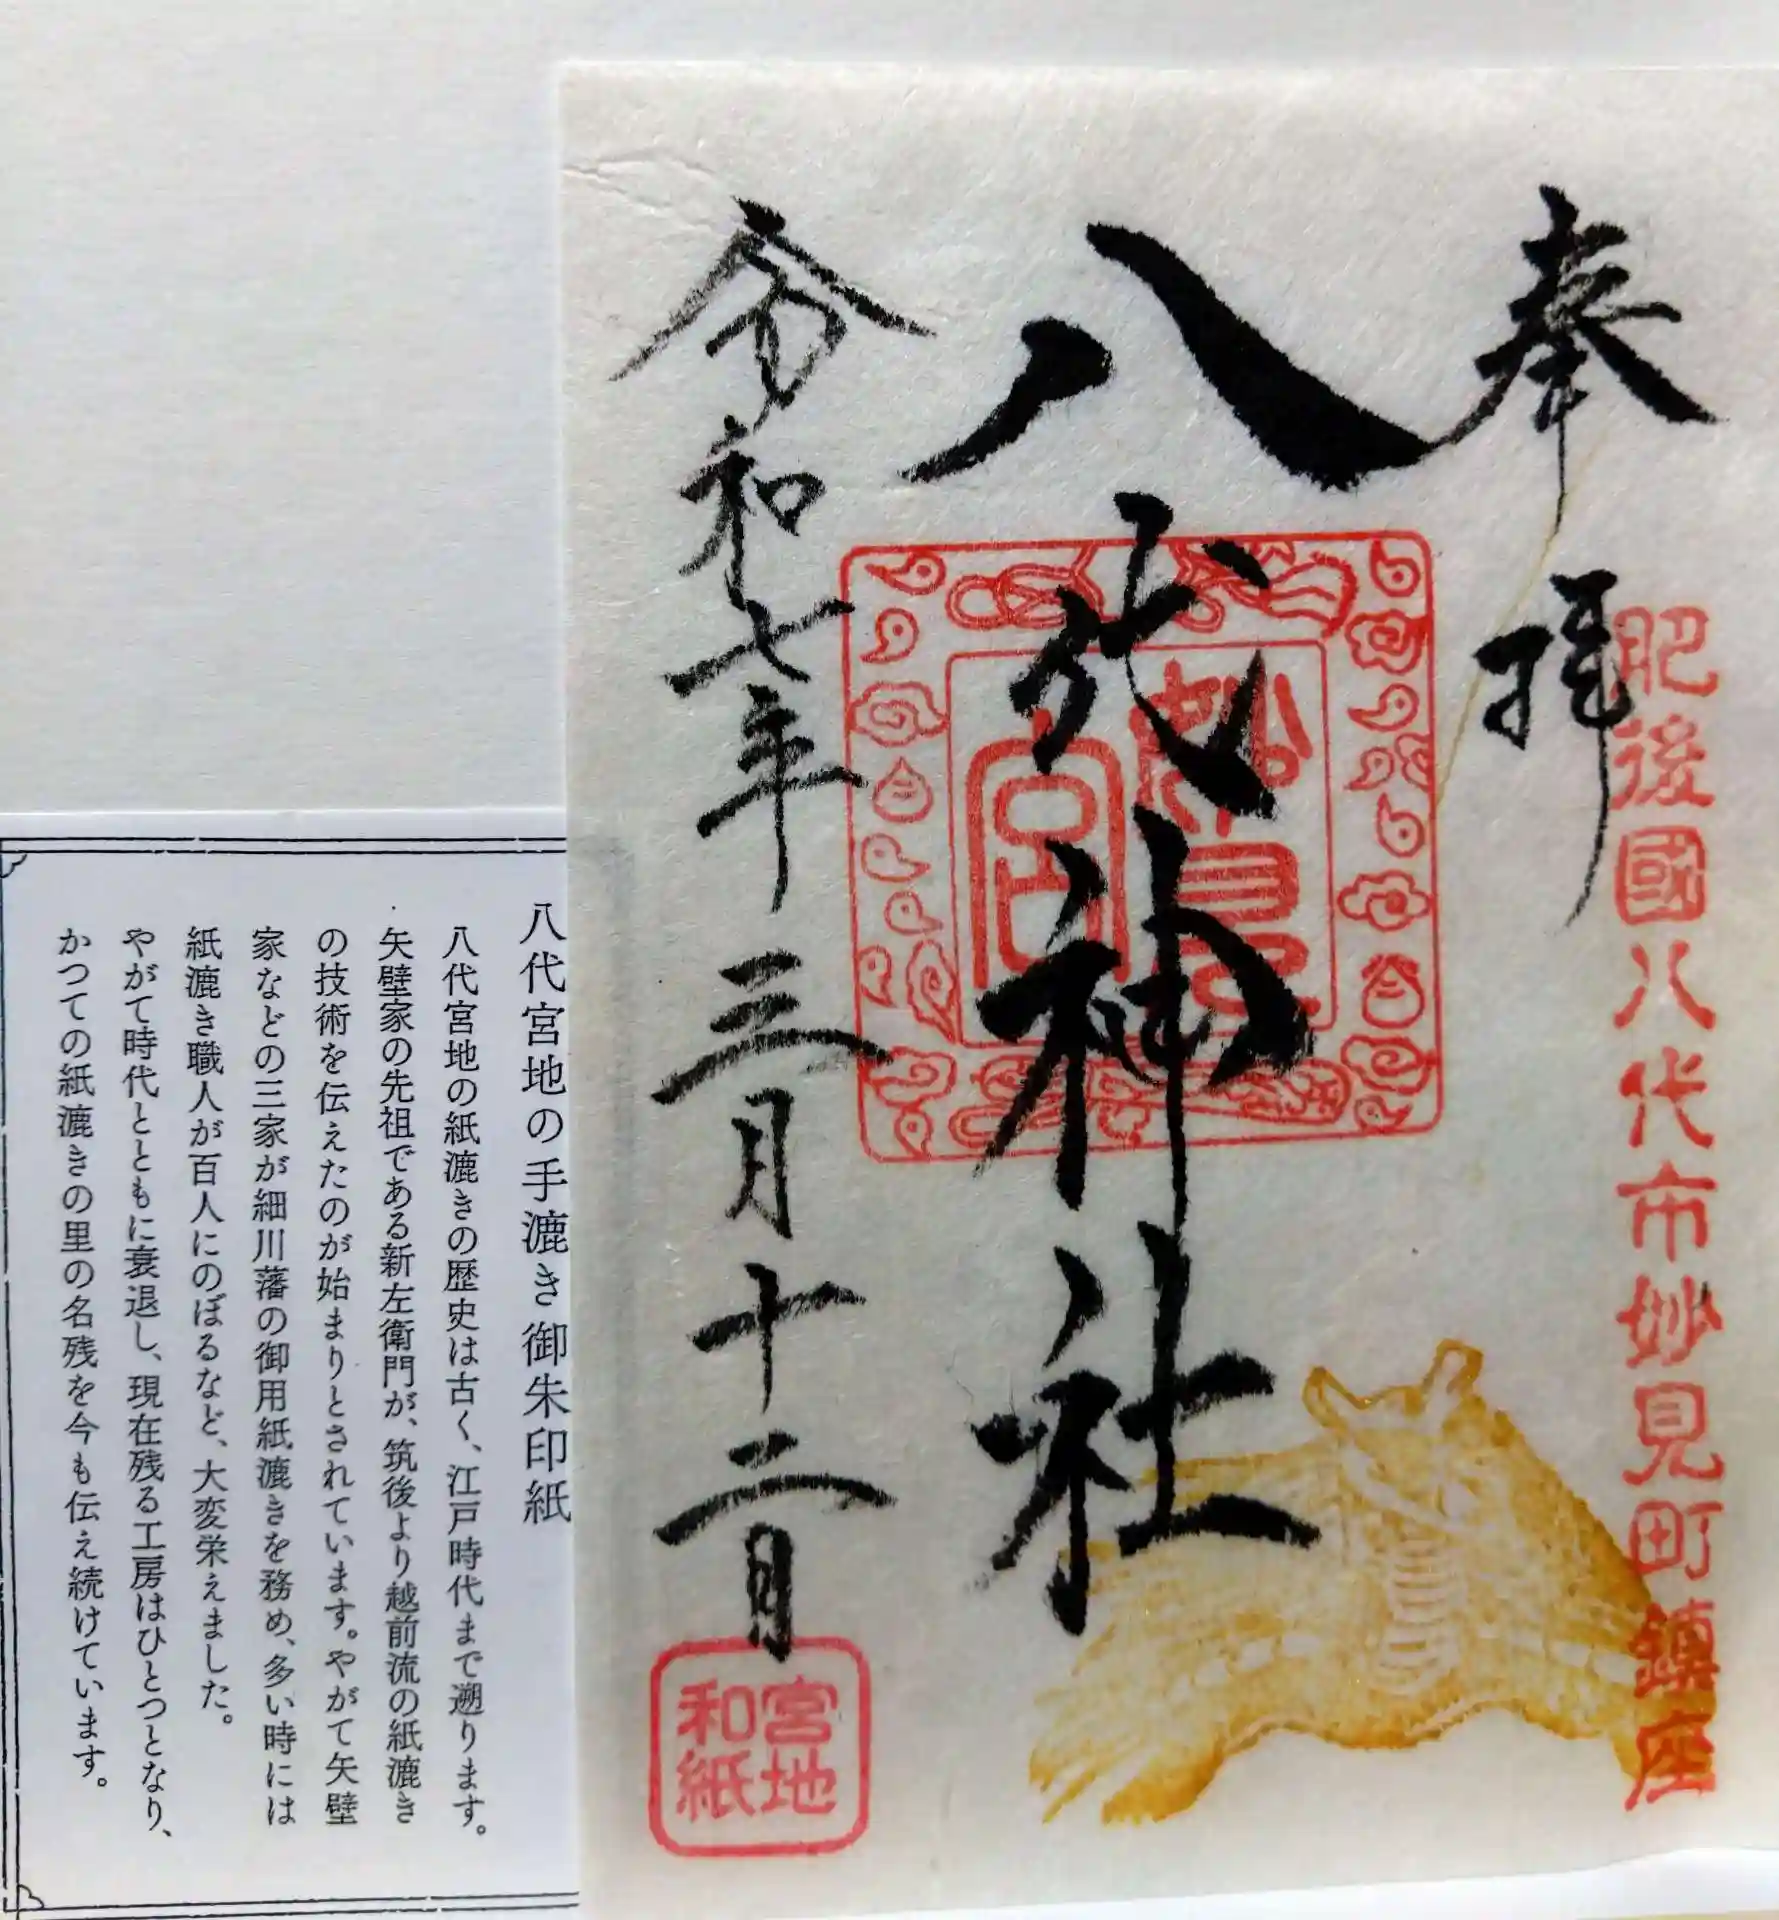 奉拝
肥後國八代市妙見町鎮座
八代神社
妙見
宮
令和七年三月十二日
宮地
和紙
八代宮地の手漉き御朱印紙
八代宮地の紙漉きの歴史は古く、江戸時代まで遡ります。
矢壁家の先祖である新左衛門が、筑後より越前流の紙漉き
の技術を伝えたのが始まりとされています。やがて矢壁
家などの三家が細川藩の御用紙漉きを務め、多い時には
紙漉き職人が百人にのぼるなど、大変栄えました。
やがて時代とともに衰退し、現在残る工房はひとつとなり、
かつての紙漉きの里の名残を今も伝え続けています。